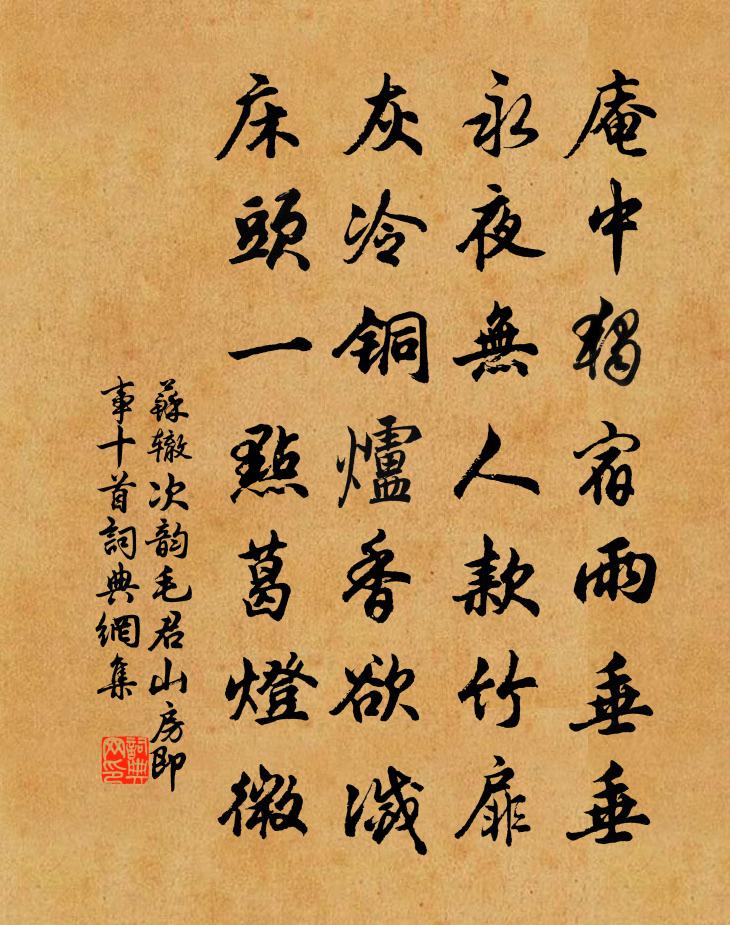 庵中獨宿雨垂垂
永夜無人款竹扉
灰冷铜爐香欲滅
床頭一點葛燈微
蘇辙次韵毛君山房即
事十首詞典網集
詞典
网印